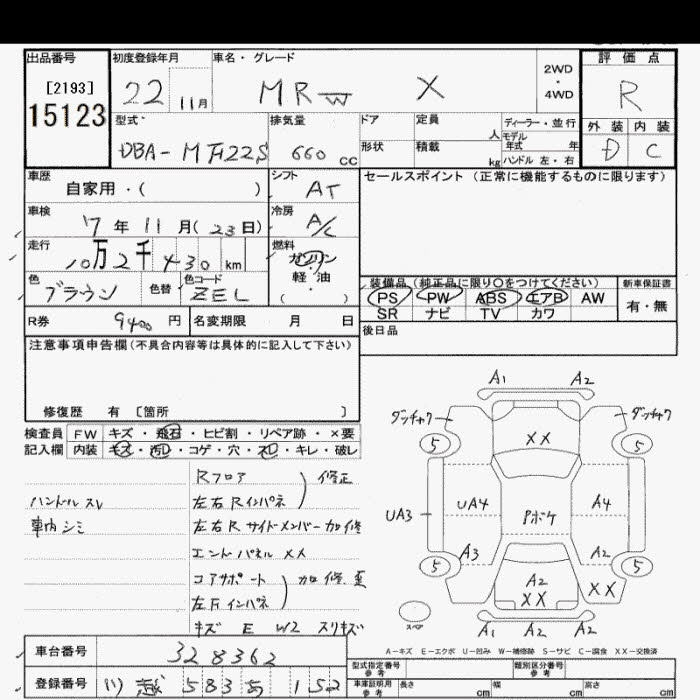 出品番号
[2193]
15123
初度登録年月
22 11月
車名・グレード
MRW X
2WD
・
4WD
評価点
R
型式
DBA-MF22S
排気量
660 CC
ドア
定員
人
ディーラー・並行
モデル
年式 年
形状
積載
kg
ハンドル 左・右
外装 内装
D C
車歴
自家用・( )
シフト
AT
セールスポイント (正常に機能するものに限ります)
車検
17年11月(23日)
冷房
A/C
走行
10万2千430km
燃料
ガソリン
軽・油
( )
色
ブラウン
色替
色コード
ZEL
装備品 (純正品に限り〇をつけてください)
PS PW ABS エアB AW
SR ナビ TV カワ
新車保証書
有・無
R券
9400 円
名変期限 月 日
後日品
注意事項申告欄(不具合内容等は具体的に記入して下さい)
修復歴 有 [箇所 ]
検査員 FW キズ・飛石・ヒビ割・リペア跡・×要
記入欄 内装 キズ・汚レ・コゲ・穴・スレ・キレ・破レ
ハンドルスレ
車内シミ
Rフロア
左右Rインパネ
修正
左右Rサイドメンバー加修
エンドパネルXX
コアサポート
左Fインパネ
加修歪
キズ E W2 スリキズ
A1 A2
ダッチャク ダッチャク
5 5
XX
UA3 UA4 Pボケ A4
A3 A2
5 5
A2
XX XX
スペア
A1 A2 A2
A-キズ E-エクボ U-凹み W-補修跡 S-サビ C-腐食 XX-交換済
車台番号
328362
登録番号
型式指定番号
参考
類別区分番号
参考
車庫証明用
参考
長さ cm 幅 cm 高さ cm